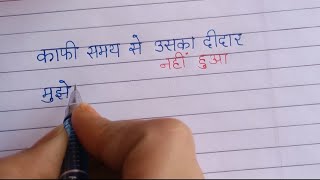 काफी समय से उसका दीदार
नहीं हुआ
मुझे